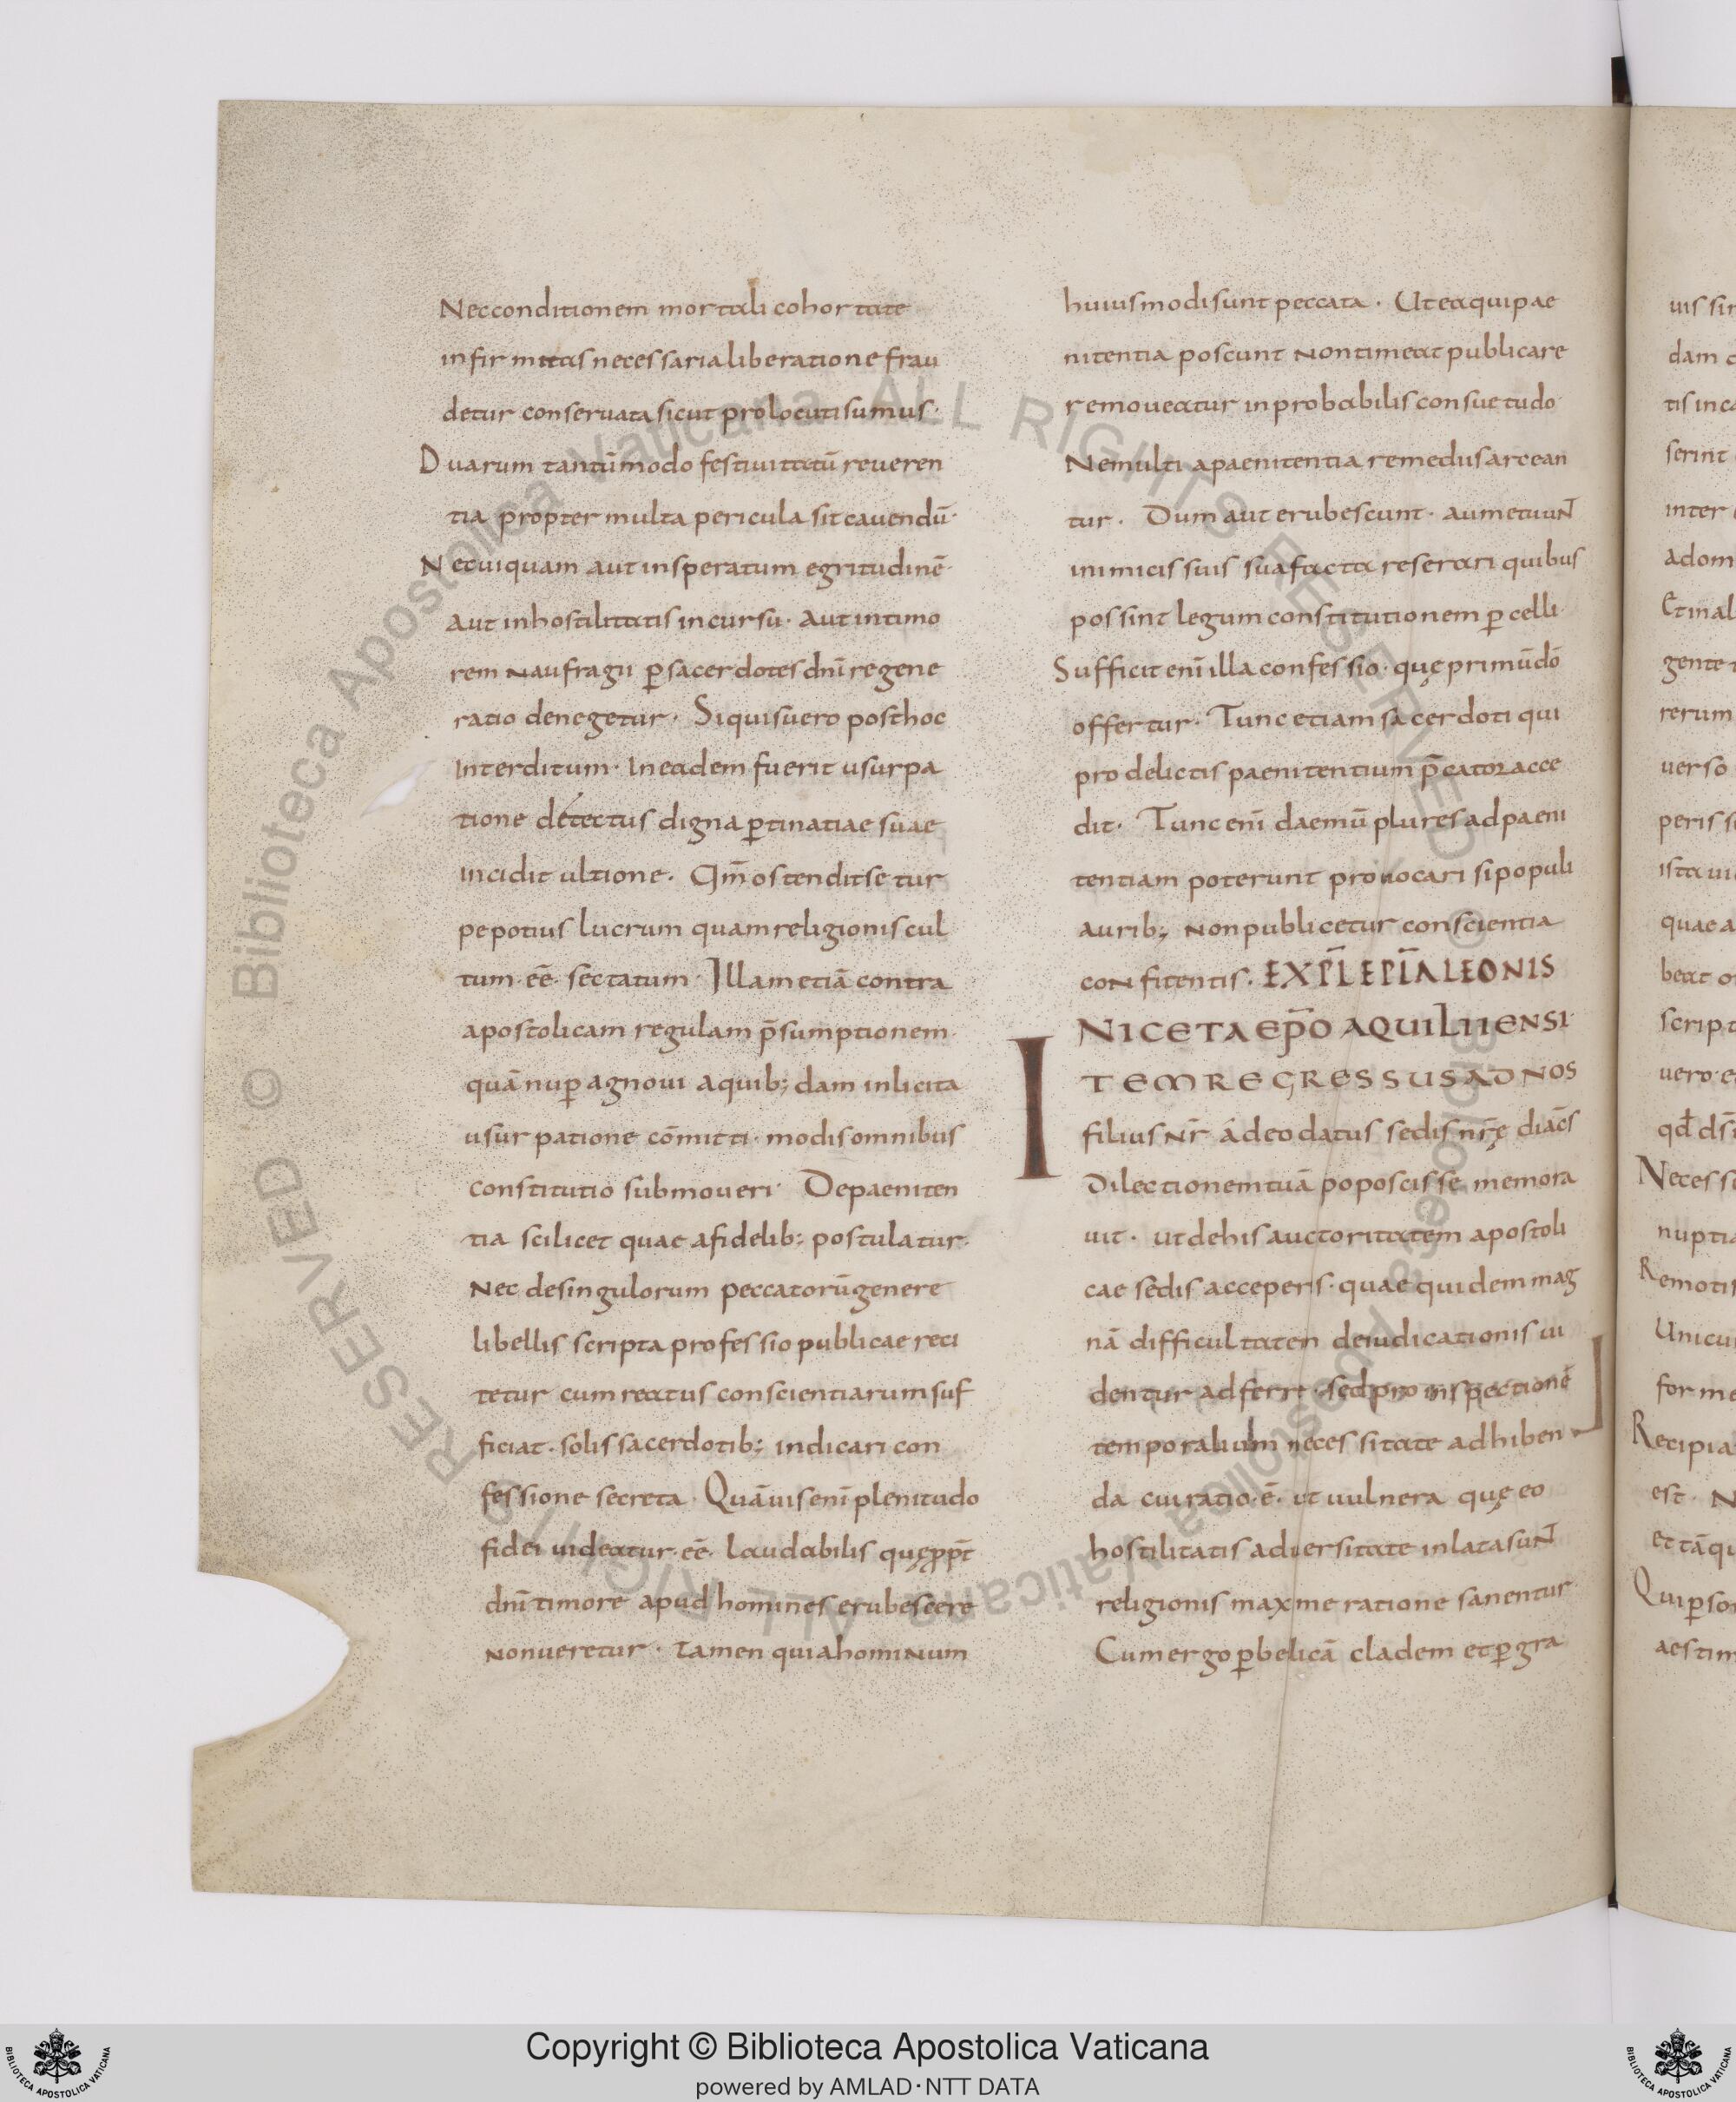 Necconditionem mortali cohortate
infirmitas necessaria liberatione frau
detur conseruata sicut prolocuti sumus·
Duarum tantū modo festiuitatū reueren
tia propter multa pericula sit cauendū·
Necuiquam aut insperatum egritudinē·
aut inhostilitatis incursu· aut intimo
rem naufragii p̄ sacerdotes dn̄i regene
ratio denegetur· Siquis uero posthoc
interditum· ineadem fuerit usurpa
tione detectus digna p̄tinatiae suae
incidit ultione· Qm̄ ostendit se tur
pe potius lucrum quam religionis cul
tum· eē· sectatum· Illam etiā contra
apostolicam regulam p̄sumptionem·
quā nup̄ agnoui aquib; dam inlicita
usurpatione cōmitti· modis omnibus
constitutio submoueri· Depaeniten
tia scilicet quae afidelib; postulatur·
Nec desingulorum peccatorū genere
libellis scripta professio publicae reci
tetur cum reatus conscientiarum suf
ficiat· solis sacerdotib; indicari con
fessione secreta· Quāuis enī plenitudo
fidei uideatur· eē· laudabilis quę pp̄t
dn̄i timore apud homines erubescere
nonueretur· tamen quia hominum
huiusmodi sunt peccata· Ut ea qui pae
nitentia poscunt non timeat publicare
remoueatur inprobabilis consuetudo·
Nemulti apaenitentia remediis arcean
tur· Dum aut erubescunt· au metuunt̄
inimicis suis sua facta reserari quibus
possint legum constitutionem p̄celli·
Sufficit enī illa confessio· quę primū dō
offertur· Tunc etiam sacerdoti qui
pro delictis paenitentium p̄cator acce
dit· Tunc enī daemū plures ad paeni
tentiam poterunt prouocari si populi
aurib; non publicetur conscientia
confitentis· EXPL̄ EPL̄A LEONIS
NICETA EP̄O AQUILIIENSI·
ITEM REGRESSUS AD NOS
filius nr̄ ádeodatus sedis nr̄ę diac̄s
Dilectionem tuā poposcisse memora
uit· ut dehis auctoritatem apostoli
cae sedis acceperis· quae quidem mag
nā difficultaten deiudicationis ui
dentur adferre· sed pro inspectione
temporalium necessitate adhiben
da cui ratio· ē· ut uulnera quę eo
hostilitatis aduersitate inlata sunt̄
religionis maxime ratione sanentur
Cum ergo p̄ belicā cladem et p̄ gra
uis sin
dam c
tis inca
serint
inter
adom
Et inal
gente
rerum
uerso
peris s
ista ui
quae a
beat o
script
uero· e
qd̄ ds̄
Necesse
nuptia
Remotis
Unicui
forme
Recipia
est· N
et tā qu
Qui p̄son
aestim
Copyright © Biblioteca Apostolica Vaticana
powered by AMLAD·NTT DATA
BIBLIOTECA APOSTOLICA VATICANA
BIBLIOTECA APOSTOLICA VATICANA
© Biblioteca Apostolica Vaticana ALL RIGHTS RESERVED
© Biblioteca Apostolica Vaticana ALL RIGHTS RESERVED